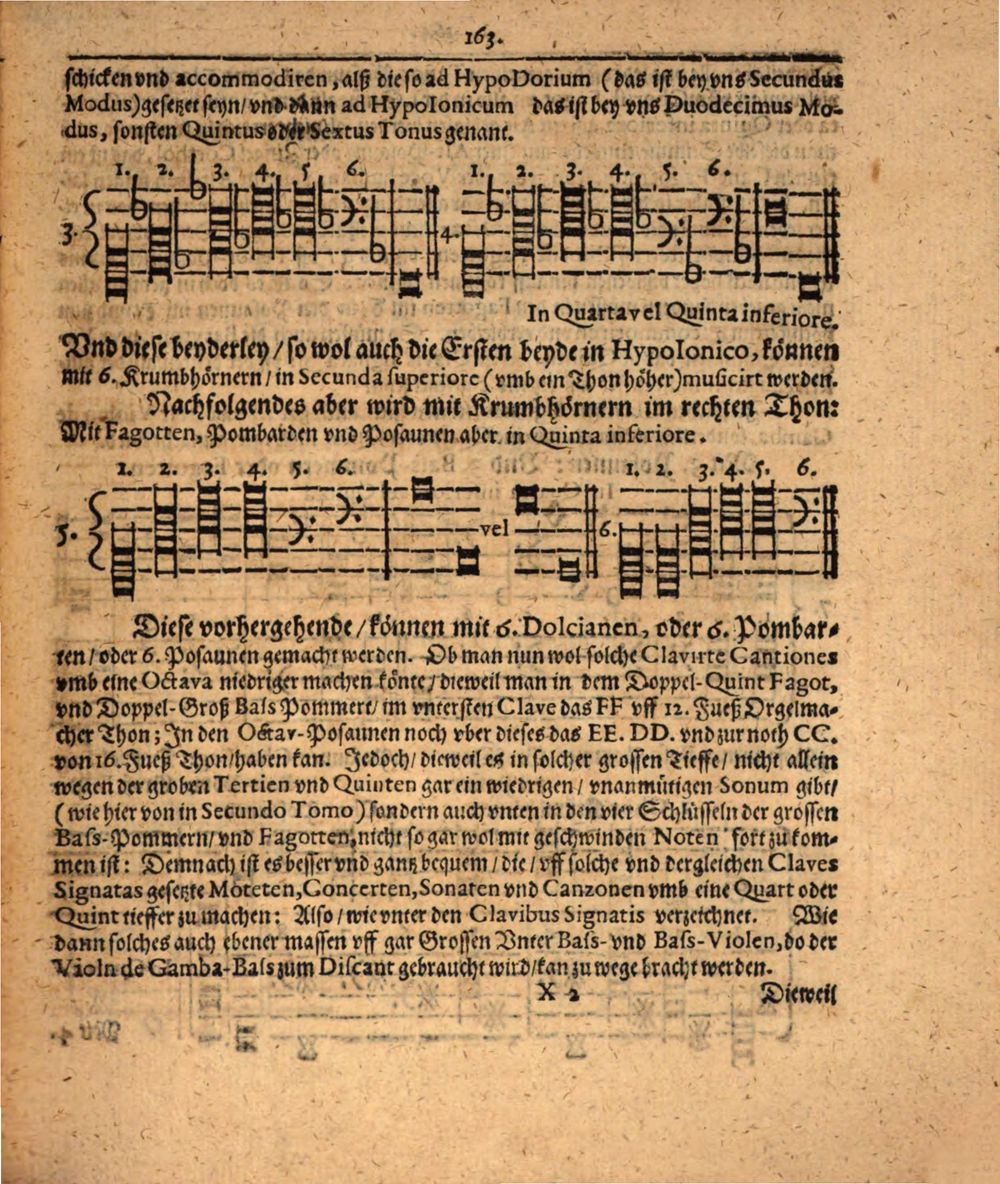 163.
schicken vnd accommodiren, alß die so ad HypoDorium (das ist bey vns Secundus
Modus) gesetzet seyn/ vnd dann ad HypoIonicum das ist bey vns Duodecimus Mo-
dus, sonsten Quintus oder Sextus Tonus genant.
1. 2. 3. 4. 5. 6. 1. 2. 3. 4. 5. 6.
3. 4.
In Quarta vel Quinta inferiore.
Vnd diese beyderley/ so wol auch die Ersten beyde in HypoIonico, können
mit 6. Krumbhörnern/ in Secunda superiore (vmb ein Thon höher) musicirt werden.
Nachfolgendes aber wird mit Krumbhörnern im rechten Thon:
Mit Fagotten, Pombarden vnd Posaunen aber in Quinta inferiore.
1. 2. 3. 4. 5. 6. 1. 2. 3. 4. 5. 6.
5. vel 6.
Diese vorhergehende/ können mit 6. Dolcianen, oder 6. Pombar-
ten/ oder 6. Posaunen gemacht werden. Ob man nun wol solche Clavirte Cantiones
vmb eine Octava niedriger machen könte/ dieweil man in dem Doppel-Quint Fagot,
vnd Doppel-Groß Bass Pommert/ im vntersten Clave das FF vff 12. Fueß Orgelma-
cher Thon; In den Octav-Posaunen noch vber dieses das EE. DD. vnd zur noth CC.
von 16. Fueß Thon/ haben kan. Jedoch/ dieweil es in solcher grossen Tieffe/ nicht allein
wegen der groben Tertien vnd Quinten gar ein wiedrigen/ vnanmütigen Sonum gibt/
(wie hier von in Secundo Tomo) sondern auch vnten in den vier Schlüsseln der grossen
Bass-Pommern/ vnd Fagotten, nicht so gar wol mit geschwinden Noten fort zu kom-
men ist: Demnach ist es besser vnd gantz bequem/ die/ vff solche vnd dergleichen Claves
Signatas gesetzte Moteten, Concerten, Sonaten vnd Canzonen vmb eine Quart oder
Quint tieffer zu machen: Also/ wie vnter den Clavibus Signatis verzeichnet. Wie
dann solches auch ebener massen vff gar Grossen Vnter Bass- vnd Bass-Violen, do der
Violn de Gamba-Bass zum Discant gebraucht wird/ kan zu wege bracht werden.
X 2 Dieweil